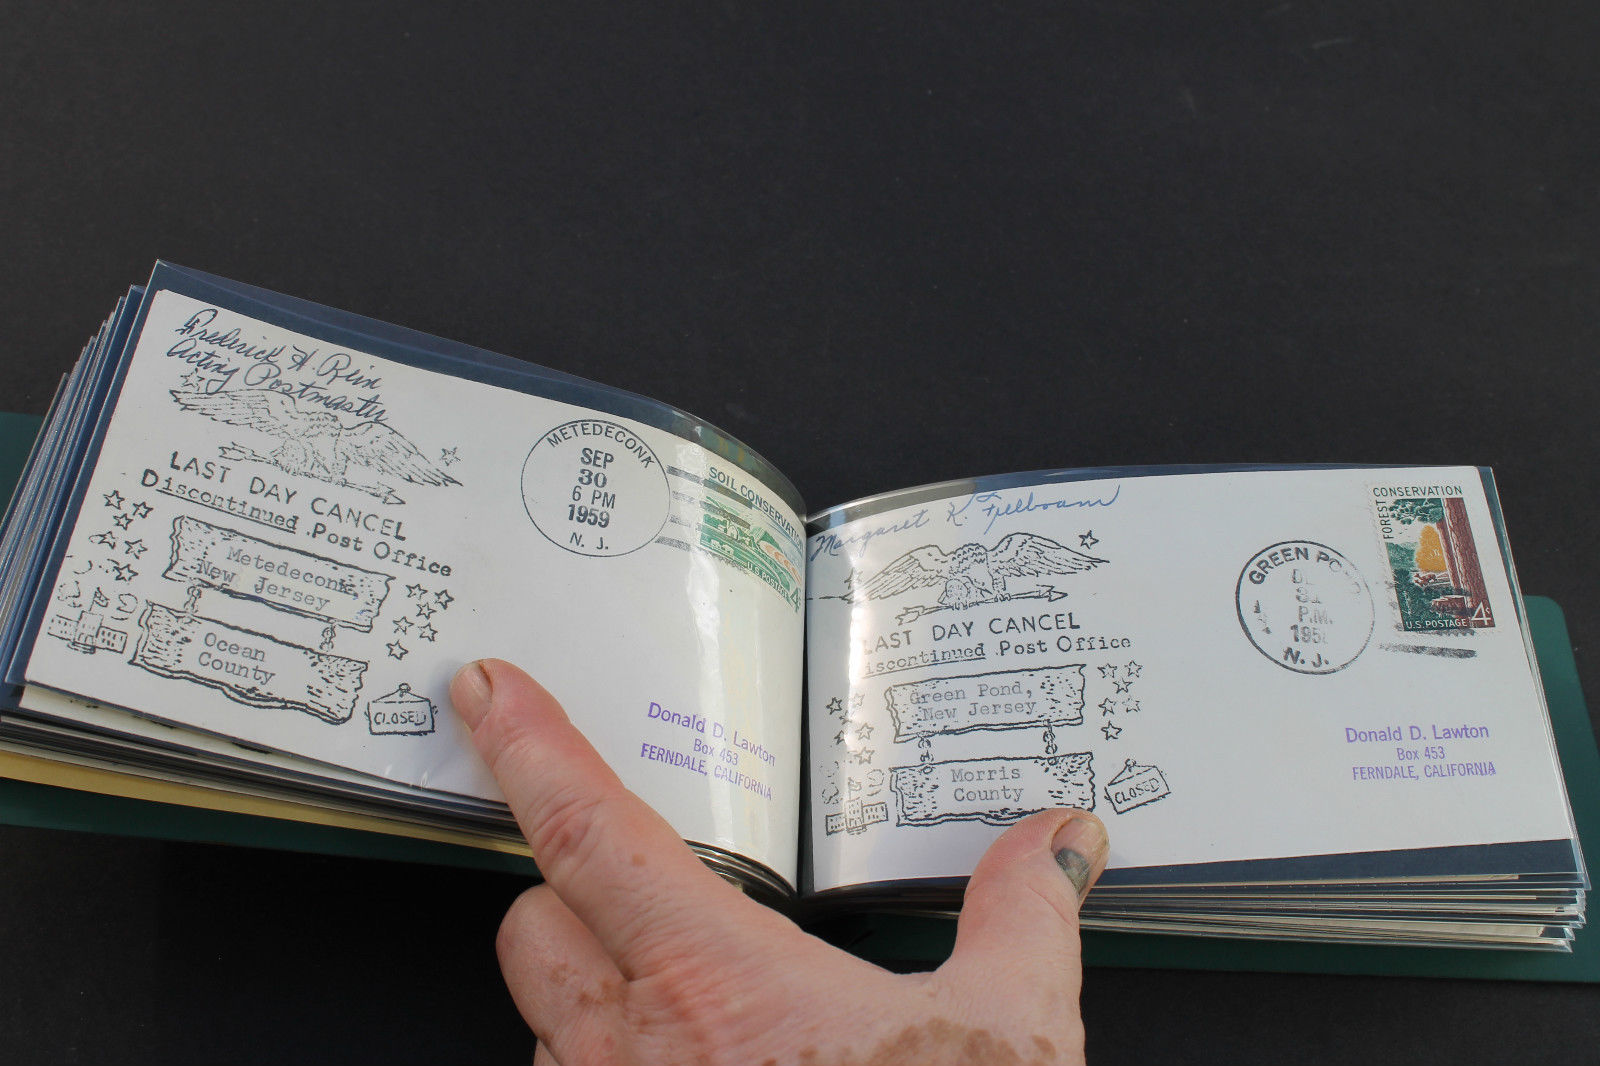 Frederick H. Rein
Acting Postmaster
LAST DAY CANCEL
Discontinued Post Office
Metedeconk,
New Jersey
Ocean
County
CLOSED
METEDECONK
SEP
30
6 PM
1959
N. J.
SOIL CONSERVATION
U.S. POSTAGE 4¢
Donald D. Lawton
Box 453
FERNDALE, CALIFORNIA
Margaret K.
LAST DAY CANCEL
iscontinued Post Office
Green Pond,
New Jersey
Morris
County
CLOSED
GREEN POND
31
P.M.
195
N. J.
FOREST CONSERVATION
U.S. POSTAGE 4¢
Donald D. Lawton
Box 453
FERNDALE, CALIFORNIA